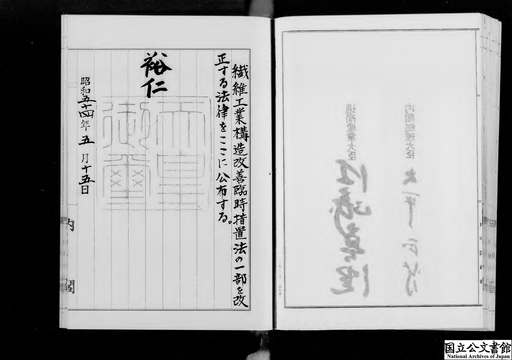 繊維工業構造改善臨時措置法の一部を改
正する法律をここに公布する。
裕仁
天皇
御璽
昭和五十四年五月十五日
内閣
内閣総理大臣
通商産業大臣
国立公文書館
National Archives of Japan